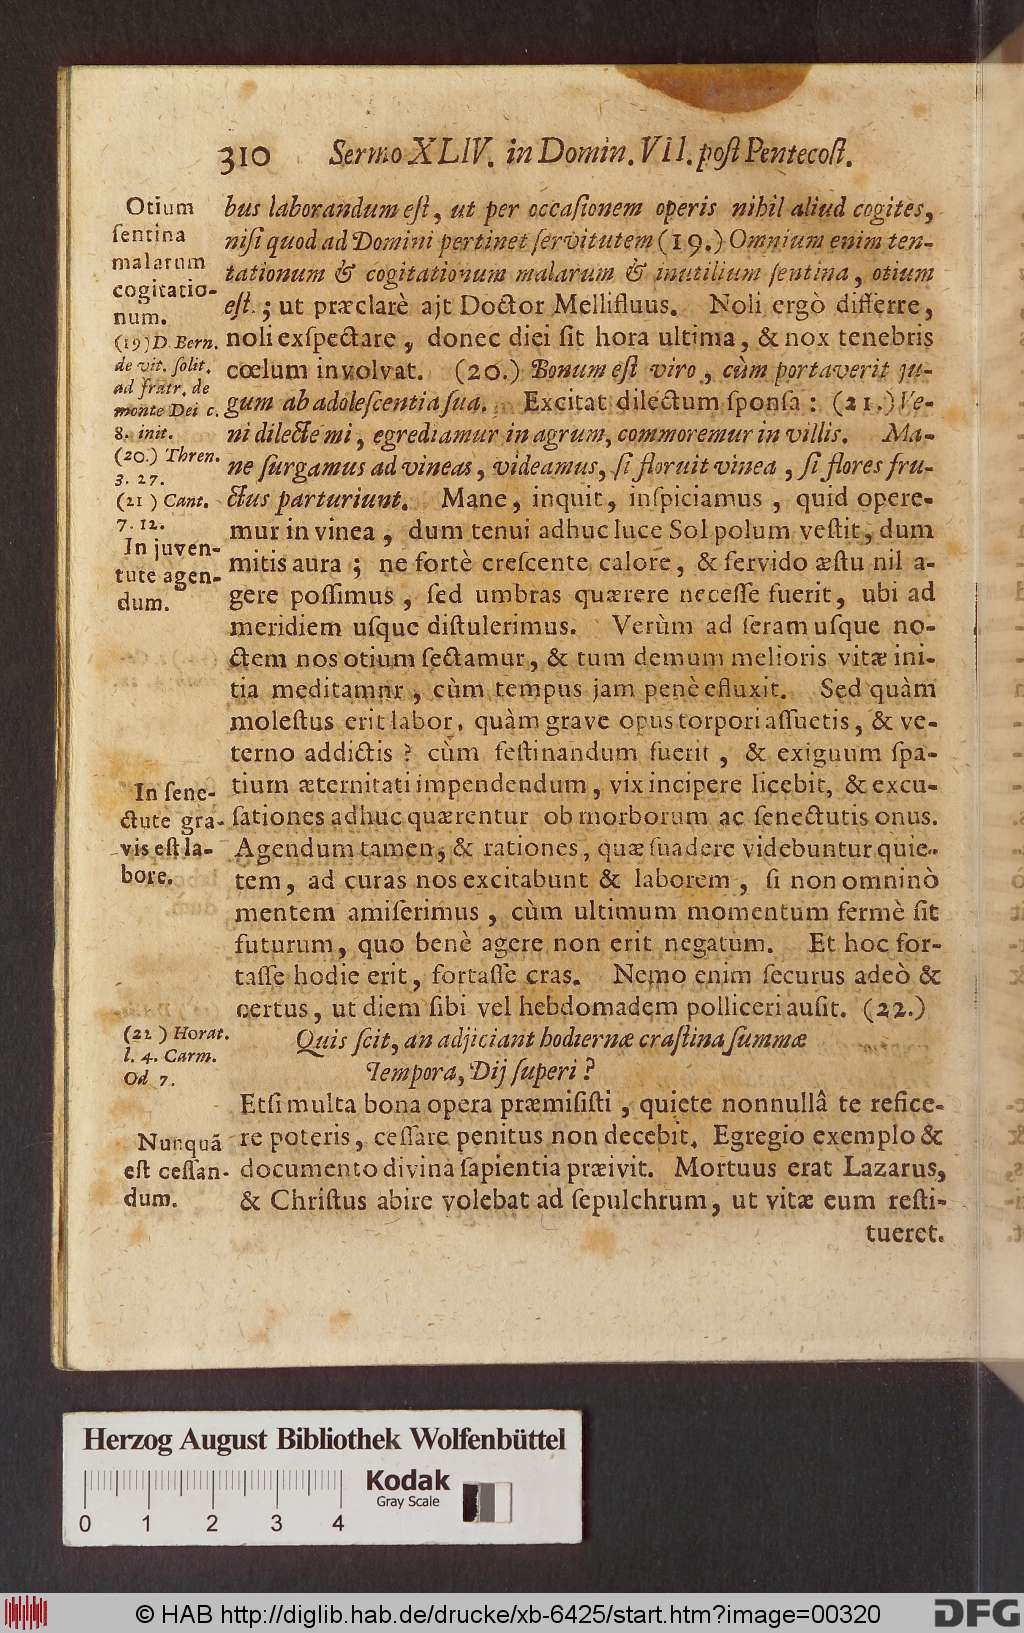 310 Sermo XLIV. in Domin. VII. poſt Pentecoſt.
Otium
ſentina
malarum
cogitatio-
num.
(19) D. Bern.
de vit. ſolit.
ad fratr. de
monte Dei c.
8. init.
(20.) Thren.
3. 27.
(21) Cant.
7. 12.
In juven-
tute agen-
dum.
In ſene-
ctute gra-
vis eſt la-
bore.
(22) Horat.
l. 4. Carm.
Od 7.
Nunquã
eſt ceſſan-
dum.
bus laborandum eſt, ut per occaſionem operis nihil aliud cogites,
niſi quod ad Domini pertinet ſervitutem (19.) Omnium enim ten-
tationum & cogitationum malarum & inutilium ſentina, otium
eſt.; ut præclarè ajt Doctor Mellifluus. Noli ergò differre,
noli exſpectare, donec diei ſit hora ultima, & nox tenebris
cœlum involvat. (20.) Bonum eſt viro, cùm portaverit ju-
gum ab adoleſcentia ſua. Excitat dilectum ſponſa: (21.) Ve-
ni dilecte mi, egrediamur in agrum, commoremur in villis. Ma-
ne ſurgamus ad vineas, videamus, ſi floruit vinea, ſi flores fru-
ctus parturiunt. Mane, inquit, inſpiciamus, quid opere-
mur in vinea, dum tenui adhuc luce Sol polum veſtit, dum
mitis aura; ne fortè creſcente calore, & fervido æſtu nil a-
gere poſſimus, ſed umbras quærere neceſſe fuerit, ubi ad
meridiem uſque diſtulerimus. Verùm ad ſeram uſque no-
ctem nos otium ſectamur, & tum demum melioris vitæ ini-
tia meditamnr, cùm tempus jam penè efluxit. Sed quàm
moleſtus erit labor, quàm grave opus torpori aſſuetis, & ve-
terno addictis? cùm feſtinandum fuerit, & exiguum ſpa-
tium æternitati impendendum, vix incipere licebit, & excu-
ſationes adhuc quærentur ob morborum ac ſenectutis onus.
Agendum tamen, & rationes, quæ ſuadere videbuntur quie-
tem, ad curas nos excitabunt & laborem, ſi non omninò
mentem amiſerimus, cùm ultimum momentum fermè ſit
futurum, quo benè agere non erit negatum. Et hoc for-
taſſe hodie erit, fortaſſe cras. Nemo enim ſecurus adeò &
certus, ut diem ſibi vel hebdomadem polliceri auſit. (22.)
Quis ſcit, an adjiciant hodiernæ craſtina ſummæ
Tempora, Dij ſuperi?
Etſi multa bona opera præmiſiſti, quiete nonnullâ te refice-
re poteris, ceſſare penitus non decebit. Egregio exemplo &
documento divina ſapientia præivit. Mortuus erat Lazarus,
& Chriſtus abire volebat ad ſepulchrum, ut vitæ eum reſti-
tueret.
Herzog August Bibliothek Wolfenbüttel
Kodak
Gray Scale
0 1 2 3 4
© HAB http://diglib.hab.de/drucke/xb-6425/start.htm?image=00320
DFG